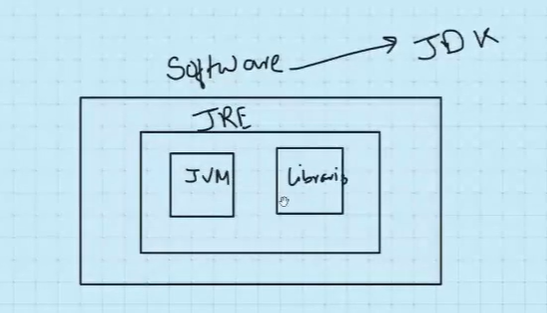 Software JDK
JRE
JVM
Libraris